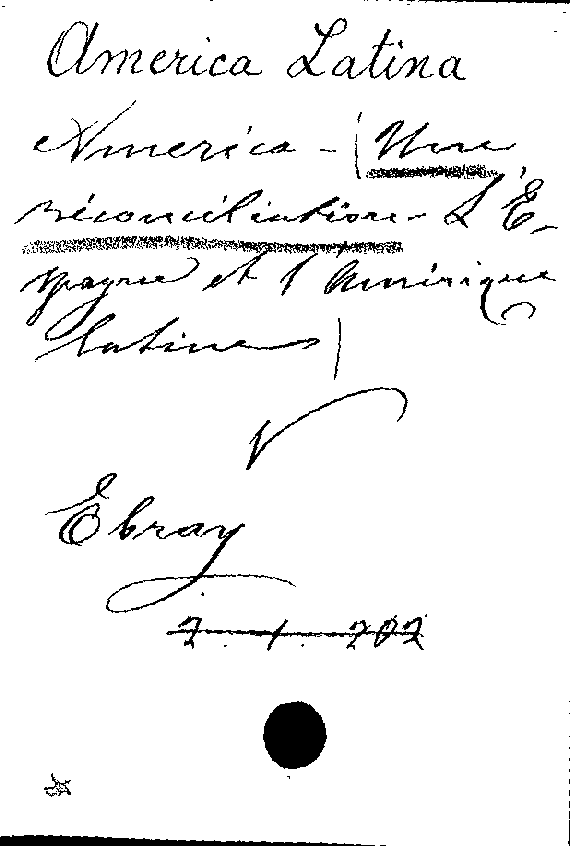 America Latina
America - (Une
réconciliation - L'Es-
pagne et l'Amérique
latine)
V
Ebray
2. 1. 202